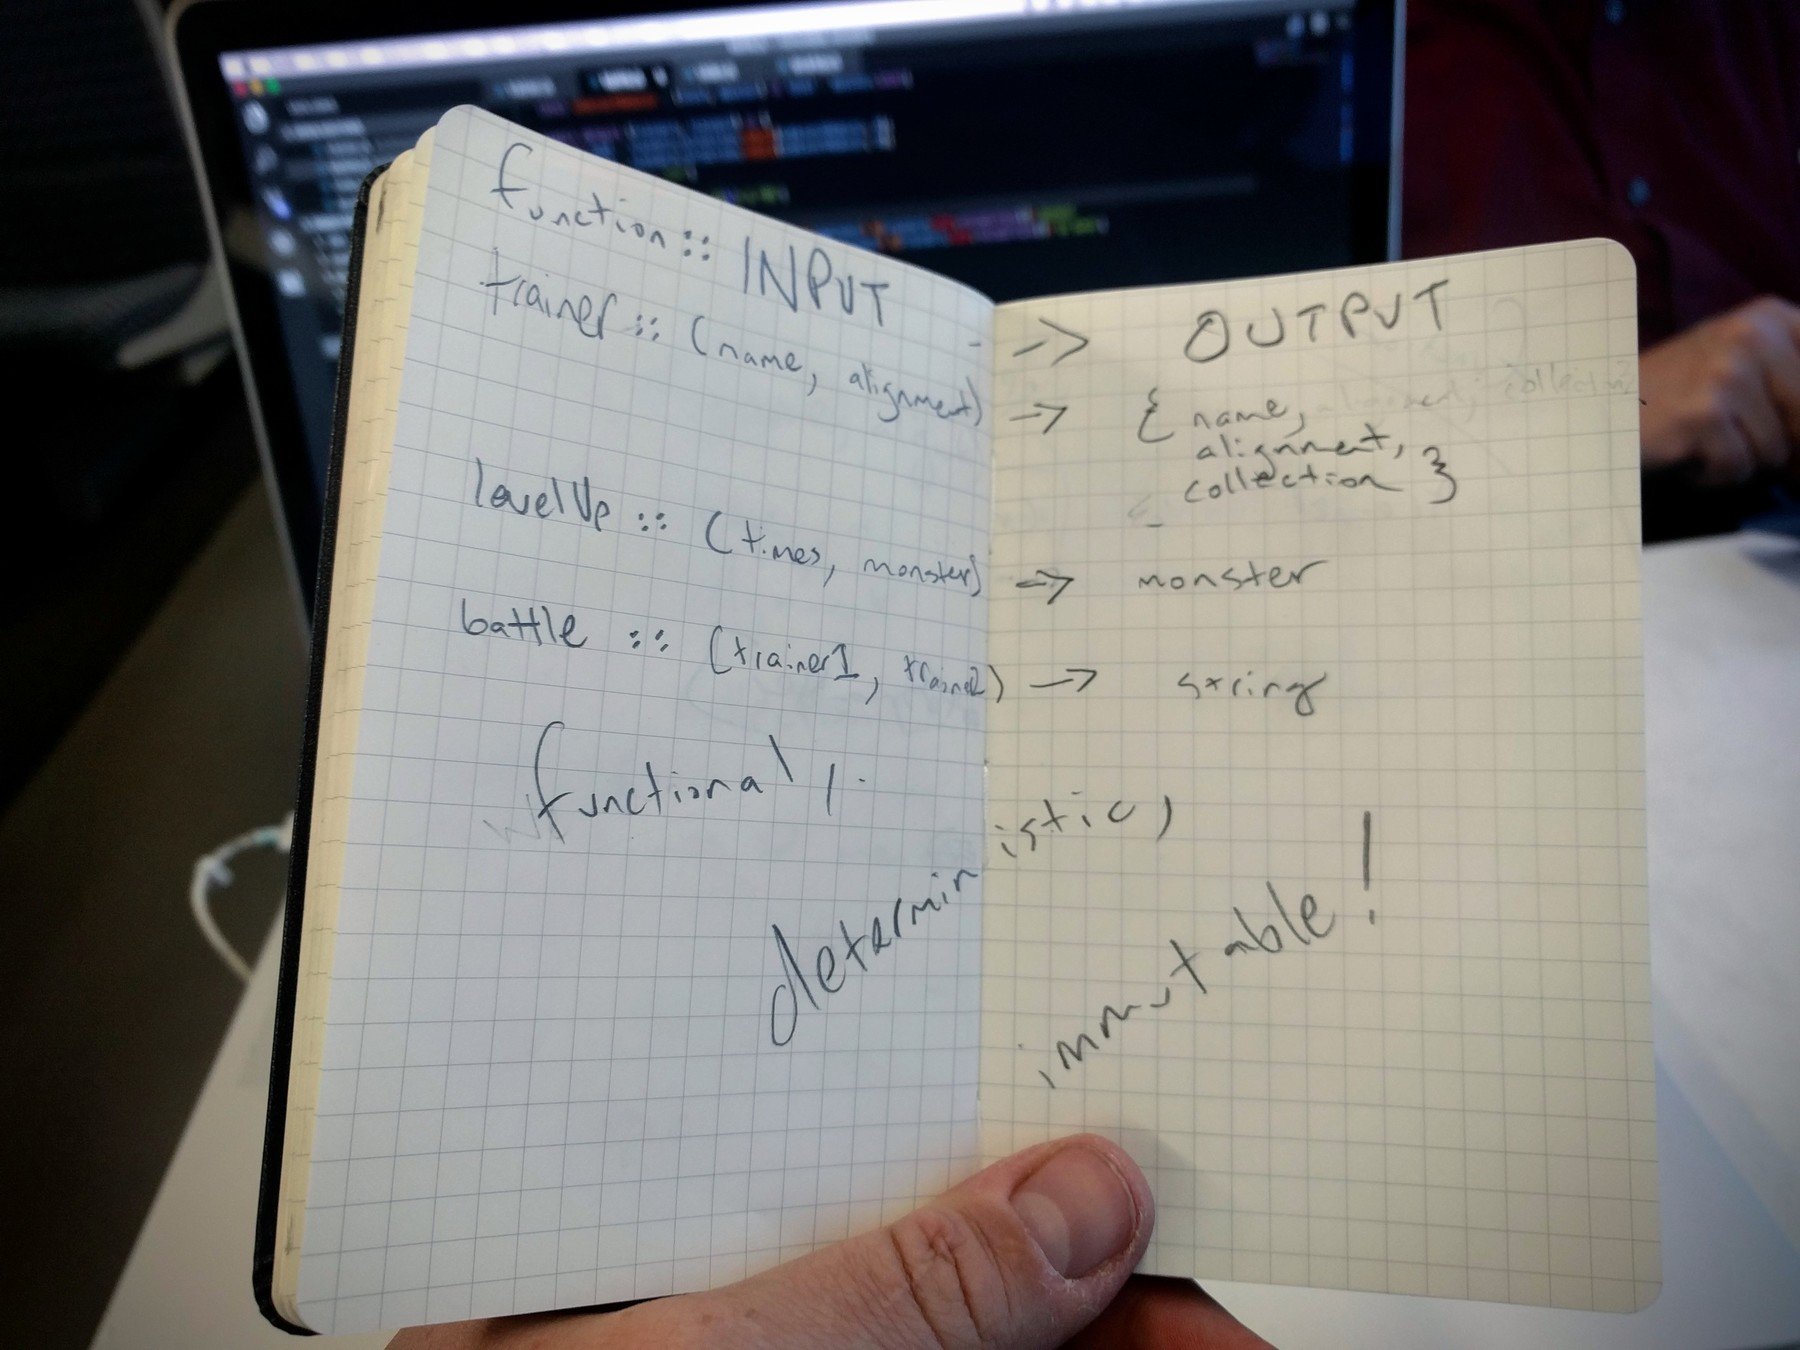 function :: INPUT -> OUTPUT
trainer :: (name, alignment) -> { name,
alignment,
collection }
levelUp :: (times, monster) -> monster
battle :: (trainer1, trainer2) -> string
functional,
deterministic,
immutable!